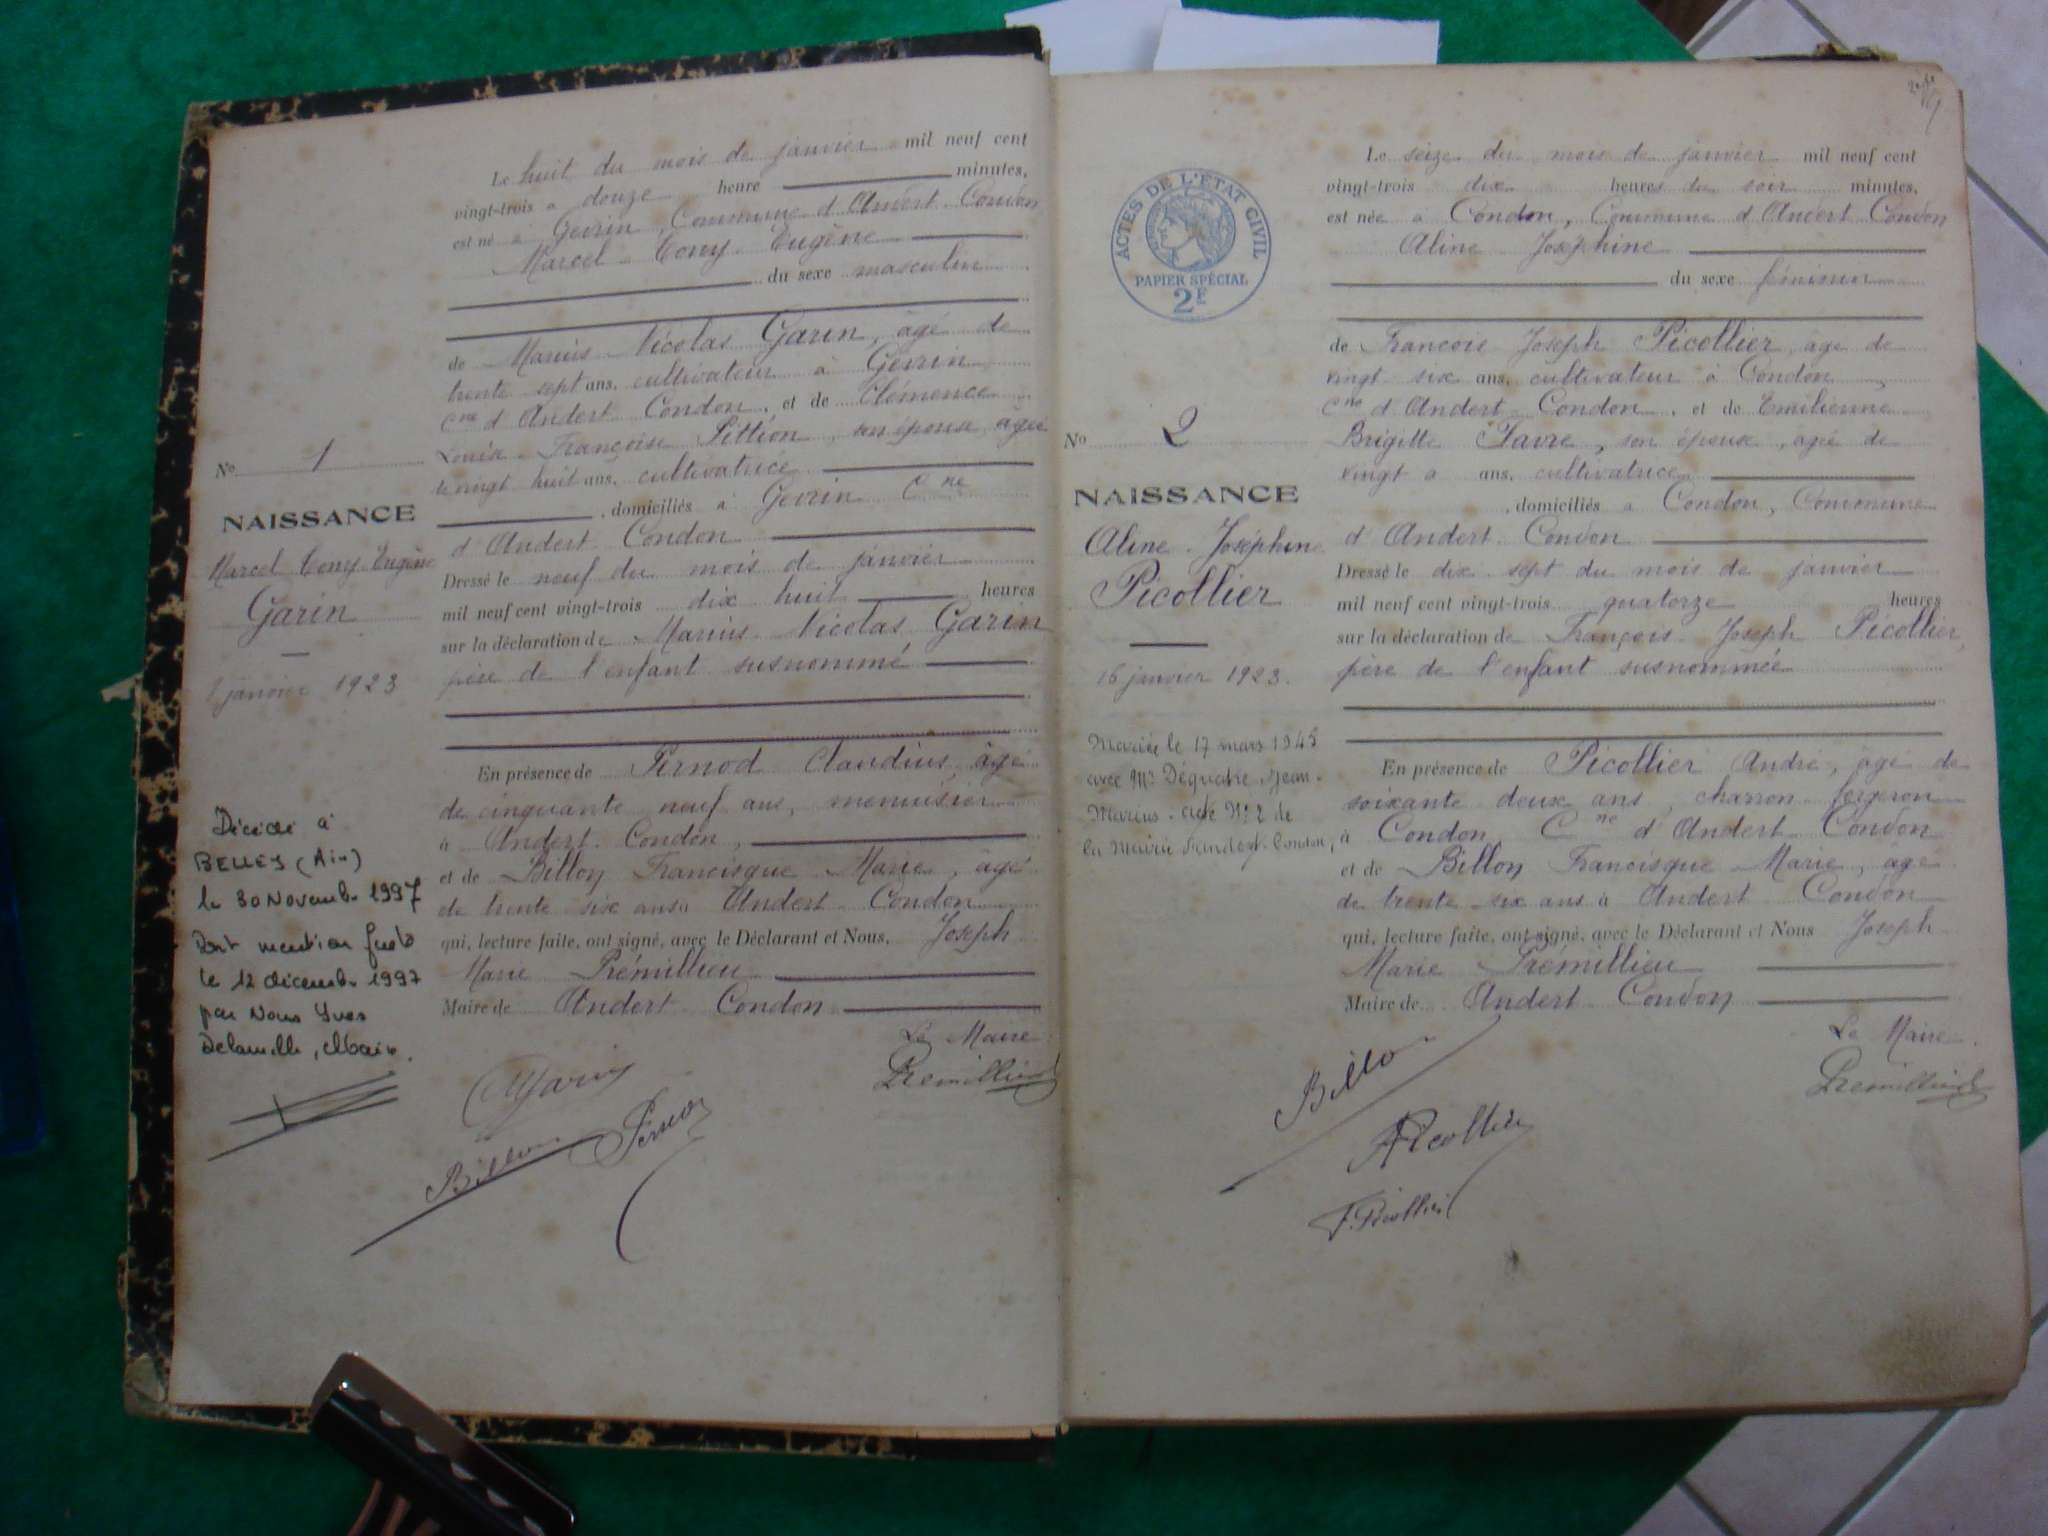 Le huit du mois de janvier mil neuf cent
vingt-trois à douze heure minutes,
est né à Gevrin, Commune d'Andert-Condon
Marcel Tony Eugène
du sexe masculin
de Marius Nicolas Garin, âgé de
trente sept ans, cultivateur à Gevrin
Cne d'Andert Condon, et de Clémence
Louise Françoise Pittion, son épouse, âgée
de vingt huit ans, cultivatrice
, domiciliés à Gevrin Cne
d'Andert Condon
Dressé le neuf du mois de janvier
mil neuf cent vingt-trois dix huit heures
sur la déclaration de Marius Nicolas Garin
père de l'enfant susnommé
En présence de Pernod Claudius, âgé
de cinquante neuf ans, menuisier
à Andert-Condon,
et de Billon Francisque Marie, âgé
de trente six ans à Andert-Condon
qui, lecture faite, ont signé, avec le Déclarant et Nous, Joseph
Marie Prémillieu
Maire de Andert-Condon
Le Maire
Prémillieu
Garin
Billon Pernod
No 1
NAISSANCE
Marcel Tony Eugène
Garin
8 janvier 1923
Décédé à
BELLEY (Ain)
le 30 Novembre 1997
Dont mention faite
le 12 décembre 1997
par Nous Yves
Maire.
ACTES DE L'ÉTAT CIVIL
PAPIER SPÉCIAL
2F
Le seize du mois de janvier mil neuf cent
vingt-trois dix heures du soir minutes,
est née à Condon, Commune d'Andert Condon
Aline Joséphine
du sexe féminin
de François Joseph Picollier, âgé de
vingt six ans, cultivateur à Condon,
Cne d'Andert-Condon, et de Emilienne
Brigitte Favre, son épouse, âgée de
vingt ans, cultivatrice
, domiciliés à Condon, Commune
d'Andert-Condon
Dressé le dix-sept du mois de janvier
mil neuf cent vingt-trois quatorze heures
sur la déclaration de François-Joseph Picollier,
père de l'enfant susnommée
En présence de Picollier André, âgé de
soixante deux ans, charron-forgeron
à Condon, Cne d'Andert-Condon
et de Billon Francisque Marie, âgé
de trente-six ans à Andert-Condon
qui, lecture faite, ont signé, avec le Déclarant et Nous Joseph
Marie Prémillieu
Maire de Andert-Condon
Le Maire.
Prémillieu
Billon
A Picollier
F. Picollier
No 2
NAISSANCE
Aline-Joséphine
Picollier
16 janvier 1923.
Mariée le 17 mars 1945
avec Mr Déquatre Jean-
Marius - acte No 2 de
la Mairie d'Andert-Condon,